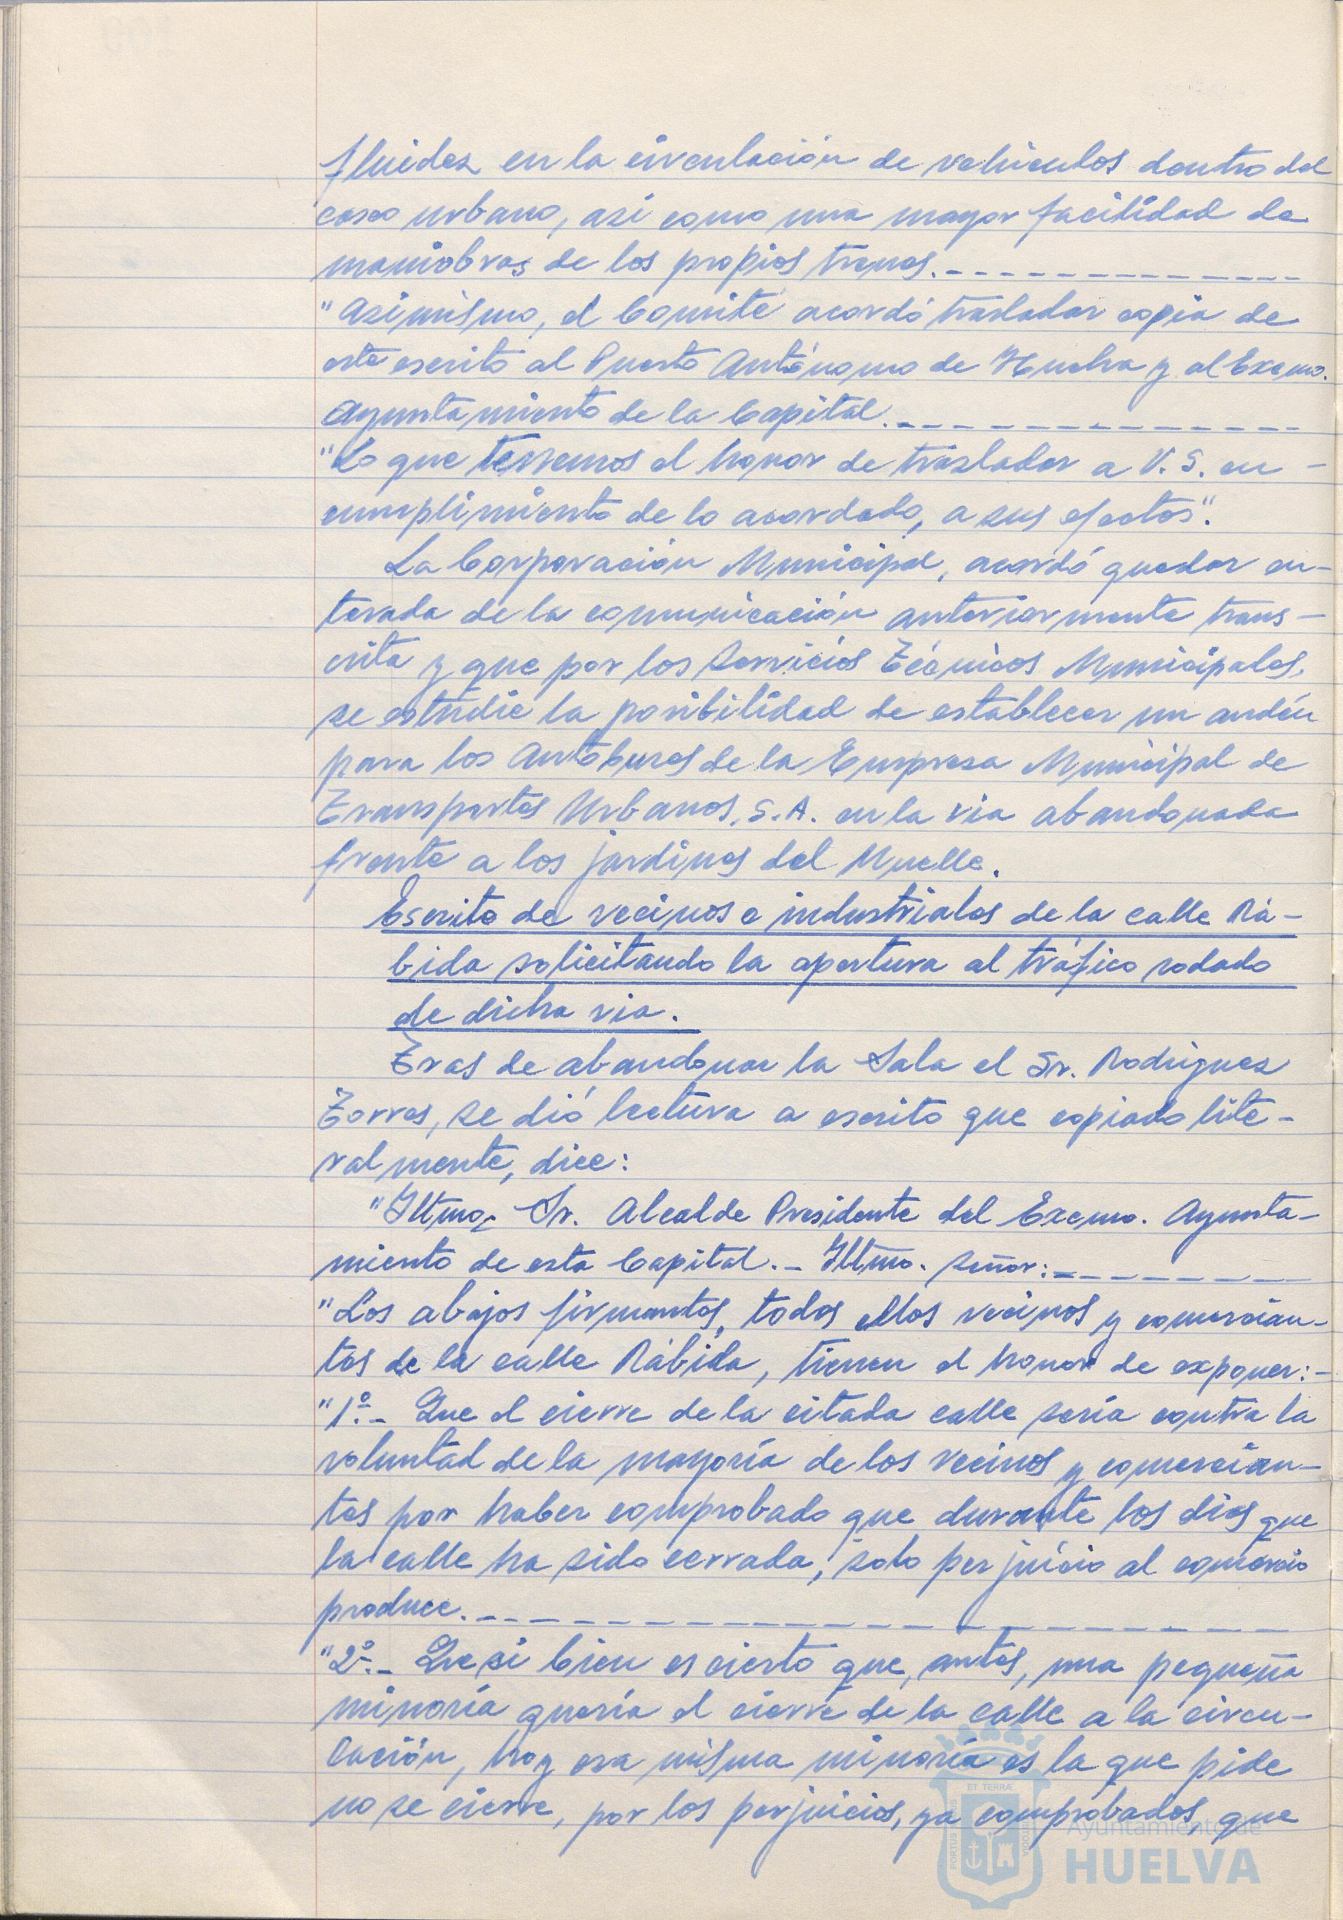 fluidez en la circulación de vehiculos dentro del
casco urbano, asi como una mayor facilidad de
maniobras de los propios trenes.
"Asimismo, el Comité acordó trasladar copia de
este escrito al Puerto Autónomo de Huelva y al Excmo.
Ayuntamiento de la Capital.
"Lo que tenemos el honor de trasladar a V. S. en
cumplimiento de lo acordado, a sus efectos".
La Corporación Municipal, acordó quedar en-
terada de la comunicación anteriormente trans-
crita y que por los Servicios Técnicos Municipales,
se estudie la posibilidad de establecer un andén
para los Autobuses de la Empresa Municipal de
Transportes Urbanos, S.A. en la via abandonada
frente a los jardines del Muelle.
Escrito de vecinos e industriales de la calle Rá-
bida solicitando la apertura al tráfico rodado
de dicha via.
Tras de abandonar la Sala el Sr. Rodríguez
Torres, se dió lectura a escrito que copiado lite-
ralmente, dice:
"Iltmo. Sr. Alcalde Presidente del Excmo. Ayunta-
miento de esta Capital.- Iltmo. Señor:
"Los abajos firmantes, todos ellos vecinos y comercian-
tes de la calle Rábida, tienen el honor de exponer:-
"1º.- Que el cierre de la citada calle sería contra la
voluntad de la mayoría de los vecinos y comercian-
tes por haber comprobado que durante los dias que
la calle ha sido cerrada, solo perjuicio al comercio
produce.
"2º.- Que si bien es cierto que, antes, una pequeña
minoría quería el cierre de la calle a la circu-
lación, hoy esa misma minoría es la que pide
no se cierre, por los perjuicios, ya comprobados, que
ET TERRAE
PORTUS
CUSTODIA
Ayuntamiento de
HUELVA